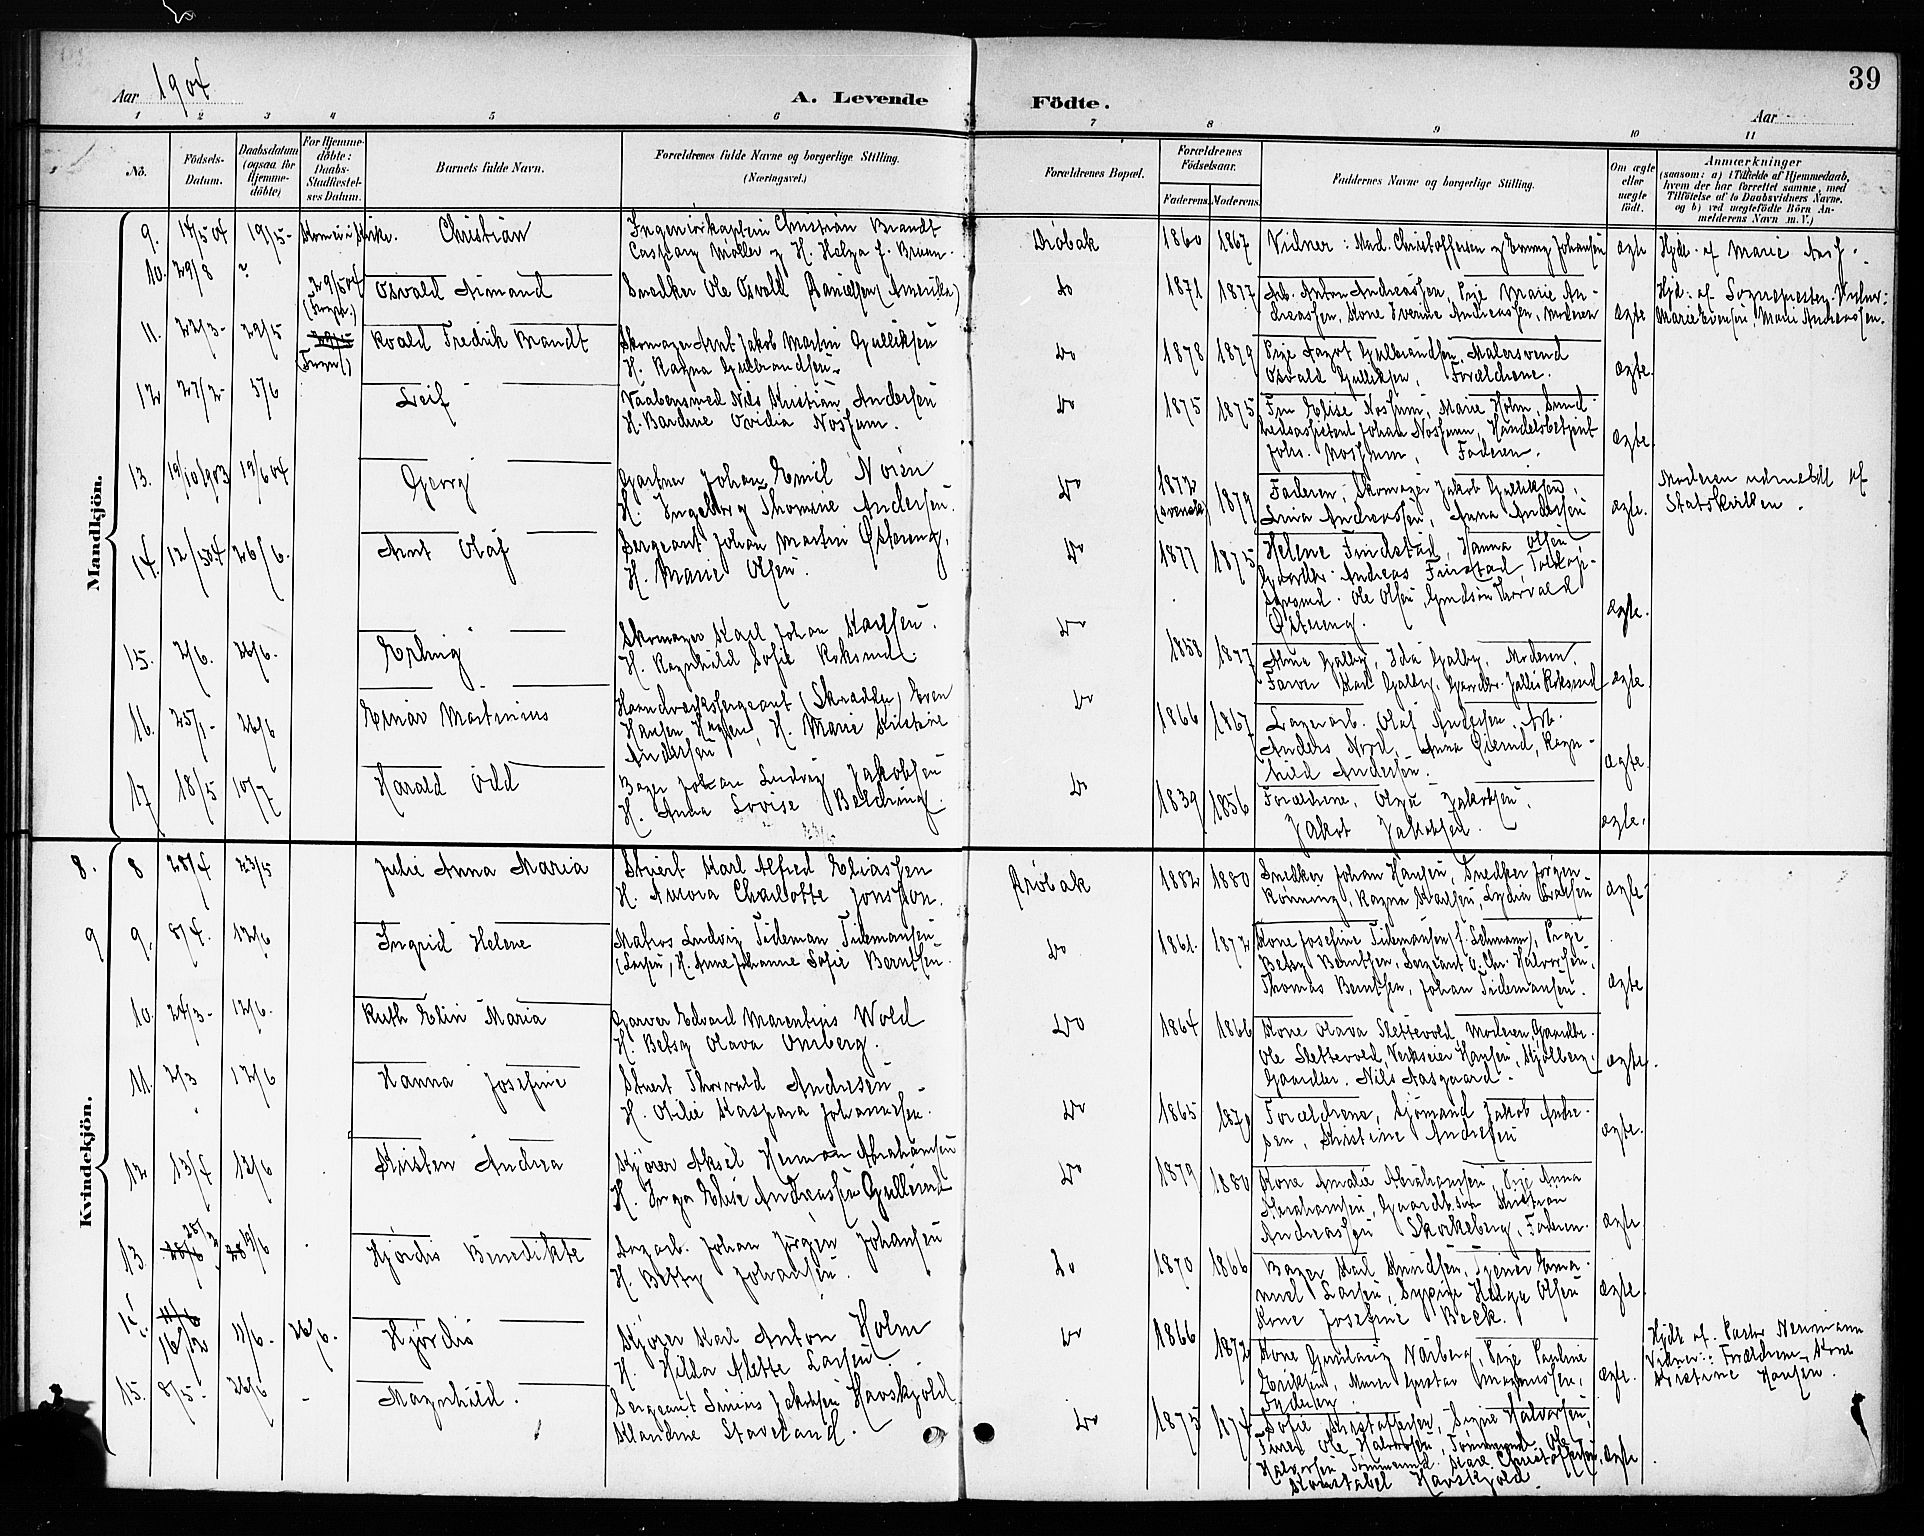 39
Aar 1904
A. Levende Födte.
Aar
1 2 3 4 5 6 7 8 9 10 11
No.
Födsels-Datum.
Daabsdatum (ogsaa for Hjemme-döbte)
For Hjemme-döbte: Daabs-Stadfæstel-ses Datum.
Barnets fulde Navn.
Forældrenes fulde Navne og borgerlige Stilling. (Næringsvei.)
Forældrenes Bopæl.
Forældrenes Födselsaar.
Faderens. Moderens.
Faddernes Navne og borgerlige Stilling.
Om ægte eller uægte födt.
Anmærkninger
(saasom: a) i Tilfælde af Hjemmedaab, hvem der har forrettet samme, med Tilföielse af to Daabsvidners Navne. og b) ved uægtefödte Börn An-melderens Navn m. V.)
Mandkjön.
9. 14/5 04 19/5 Christian
Ingeniörkaptein Christian Brandt
Caspary Møller og H. Helga f. Bruun.
Dröbak 1860 1867 Vidner: Mad. Christoffersen og Emmy Johansen ægte Hjdt. af Marie
10. 29/8 29/5 04 Osvald Armand
Snedker Ole Osvald Danielsen (Amerika)
Do 1871 1877 Arb. Anton Andreassen, Pige Marie An-
dreassen, Kone Svende Andreassen, Moderen ægte
Hjd: af Sognepresten. Vidner:
Marie Evensen, Marie Andreassen.
11. 22/3 29/5 Roald Fredrik Brandt
Skomager Arnt Jakob Martin Gulliksen
H. Ragna Gulbrandsen.
Do 1878 1879 Pige Gulbrandsen, Malersvend
Osvald Gulliksen, Forældrene. ægte.
12 27/2 5/6 Leif
Vaabensmed Nils Kristian Andersen
H. Bardine Ovidia Noshum.
Do 1875 1875 Fru Elise Noshum, Marie Holm, Sund-
hedsassistent Johan Noshum, Handelsbetjent
Johs. Noshum, Faderen. ægte.
13. 19/10 1903 19/6 04 Georg
Gartner Johan Emil Norén
H. Ingeborg Thomine Andersen.
Do 1872 (svensk) 1879 Faderen, Skomager Jakob Gulliksen,
Lina Andreassen, Anna Andersen ægte.
Moderen udmeldt af
Statskirken.
14. 12/5 04 26/6. Arnt Olaf
Sergeant Johan Martin Østereng,
H. Marie Olsen.
Do 1877 1875 Helene Finstad, Hanna Olsen
Gaardbr. Andreas Finstad,
Ole Olsen, Thorvald
Østereng. ægte.
15. 2/6. 26/6. Erling
Skomager Karl Johan Karlsen.
H. Ragnhild Sofie Roksrud.
Do 1858 1877 Alma Galby, Ida Galby, Moderen,
Farver Karl Galby, Gaardbr. Roksrud ægte.
16. 25/1 26/6 Einar Martinius
Haandverkssergeant (Skrædder) Even
Hansen, H. Marie Kristine
Andersen
Do 1866 1867 Lagerarb. Olaf Andersen, Arb.
Anders Nord, Anna Gierud, Ragn-
hild Andersen. ægte.
17 18/5 10/7 Harald Odd
Bager Johan Ludvig Jakobsen
H. Anna Lovise Beldring.
Do 1839 1856 Forældrene, Olga Jakobsen,
Jakob Jakobsen. ægte.
Kvindekjön.
8. 8 28/4 23/5 Julie Anna Maria
Stuert Karl Alfred Eliassen
H. Aurora Charlotte Jonsson.
Dröbak 1882 1880 Snedker Johan Hansen, Snedker Jörgen
Rønning, Ragna Karlsen, Lydia Eriksen ægte.
9 9. 8/4. 12/6 Ingrid Helene
Matros Ludvig Tideman Tidemansen
(Larsen), H. Anne Johanne Sofie Berntsen.
Do 1861. 1872 Kone Josefine Tidemansen f. Lehmann, Pige
Betsy Berntsen, Sergeant O. Chr. Halvorsen,
Thomas Berntsen, Johan Tidemansen. ægte
10 24/3 12/6. Ruth Elin Maria
Garver Edvard Marentius Wold
H. Betsy Olava Omberg.
Do 1864 1866 Kone Olava Slettevold, Moderen, Gaardbr.
Ole Slettevold, Verkseier Hansen, Kjølberg,
Gaardbr. Nils Aasgaard. ægte.
11. 2/3 12/6 Hanna Josefine
Stuert Thorvald Andresen
H. Otilie Kaspara Johannesen.
Do 1865 1870 Forældrene, Sjömand Jakob Andre-
sen, Kristine Andresen ægte.
12 13/4 12/6 Kirsten Andrea
Kjører Aksel Herman Abrahamsen
H. Inga Elise Andreassen Gullerud
Do 1879 1880 Kone Amalie Abrahamsen, Pige Anna
Abrahamsen, Gaardb.søn Kristian
Andreassen Skorkeberg, Faderen. ægte
13. Hjördis Benedikte
Lagarb. Johan Jørgen Johansen
H. Betty Johansen.
Do 1870 1866 Bager Karl Knudsen, Tjener Emma-
nuel Larsen, Sypige Helga Olsen
Kone Josefine Beck. ægte.
16/12 11/6. 26/6. Hjördis
Kjører Karl Anton Holm
H. Hilda Alette Larsen.
Do 1866 1872 Kone Gunilaug Narberg, Pige Pauline
Eriksen, Murer Gustav Magnussen,
Faderen. ægte.
Hjdt af Pastor Neumann
Vidner: Forældrene, Kone
Kristine Hansen.
15. 8/5 26/6 Magnhild.
Sergeant Sinius Jakobsen Havskjold
Klandine Staveland.
Do 1875 1874 Sofie Kristoffersen, Signe Halvorsen,
Ole Halvorsen, Tømmermd. Ole
Halvorsen, Tømmermd. Karl Christoffersen,
Konstabel Havskjold. ægte